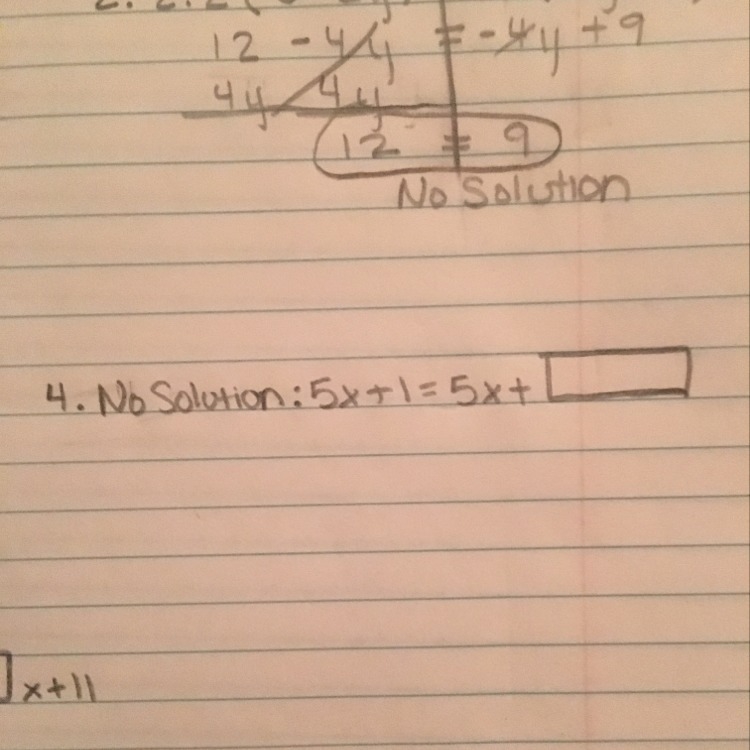 12 - 4y = -4y + 9
4y 4y
12 = 9
No Solution
4. No Solution: 5x+1 = 5x+
x+11